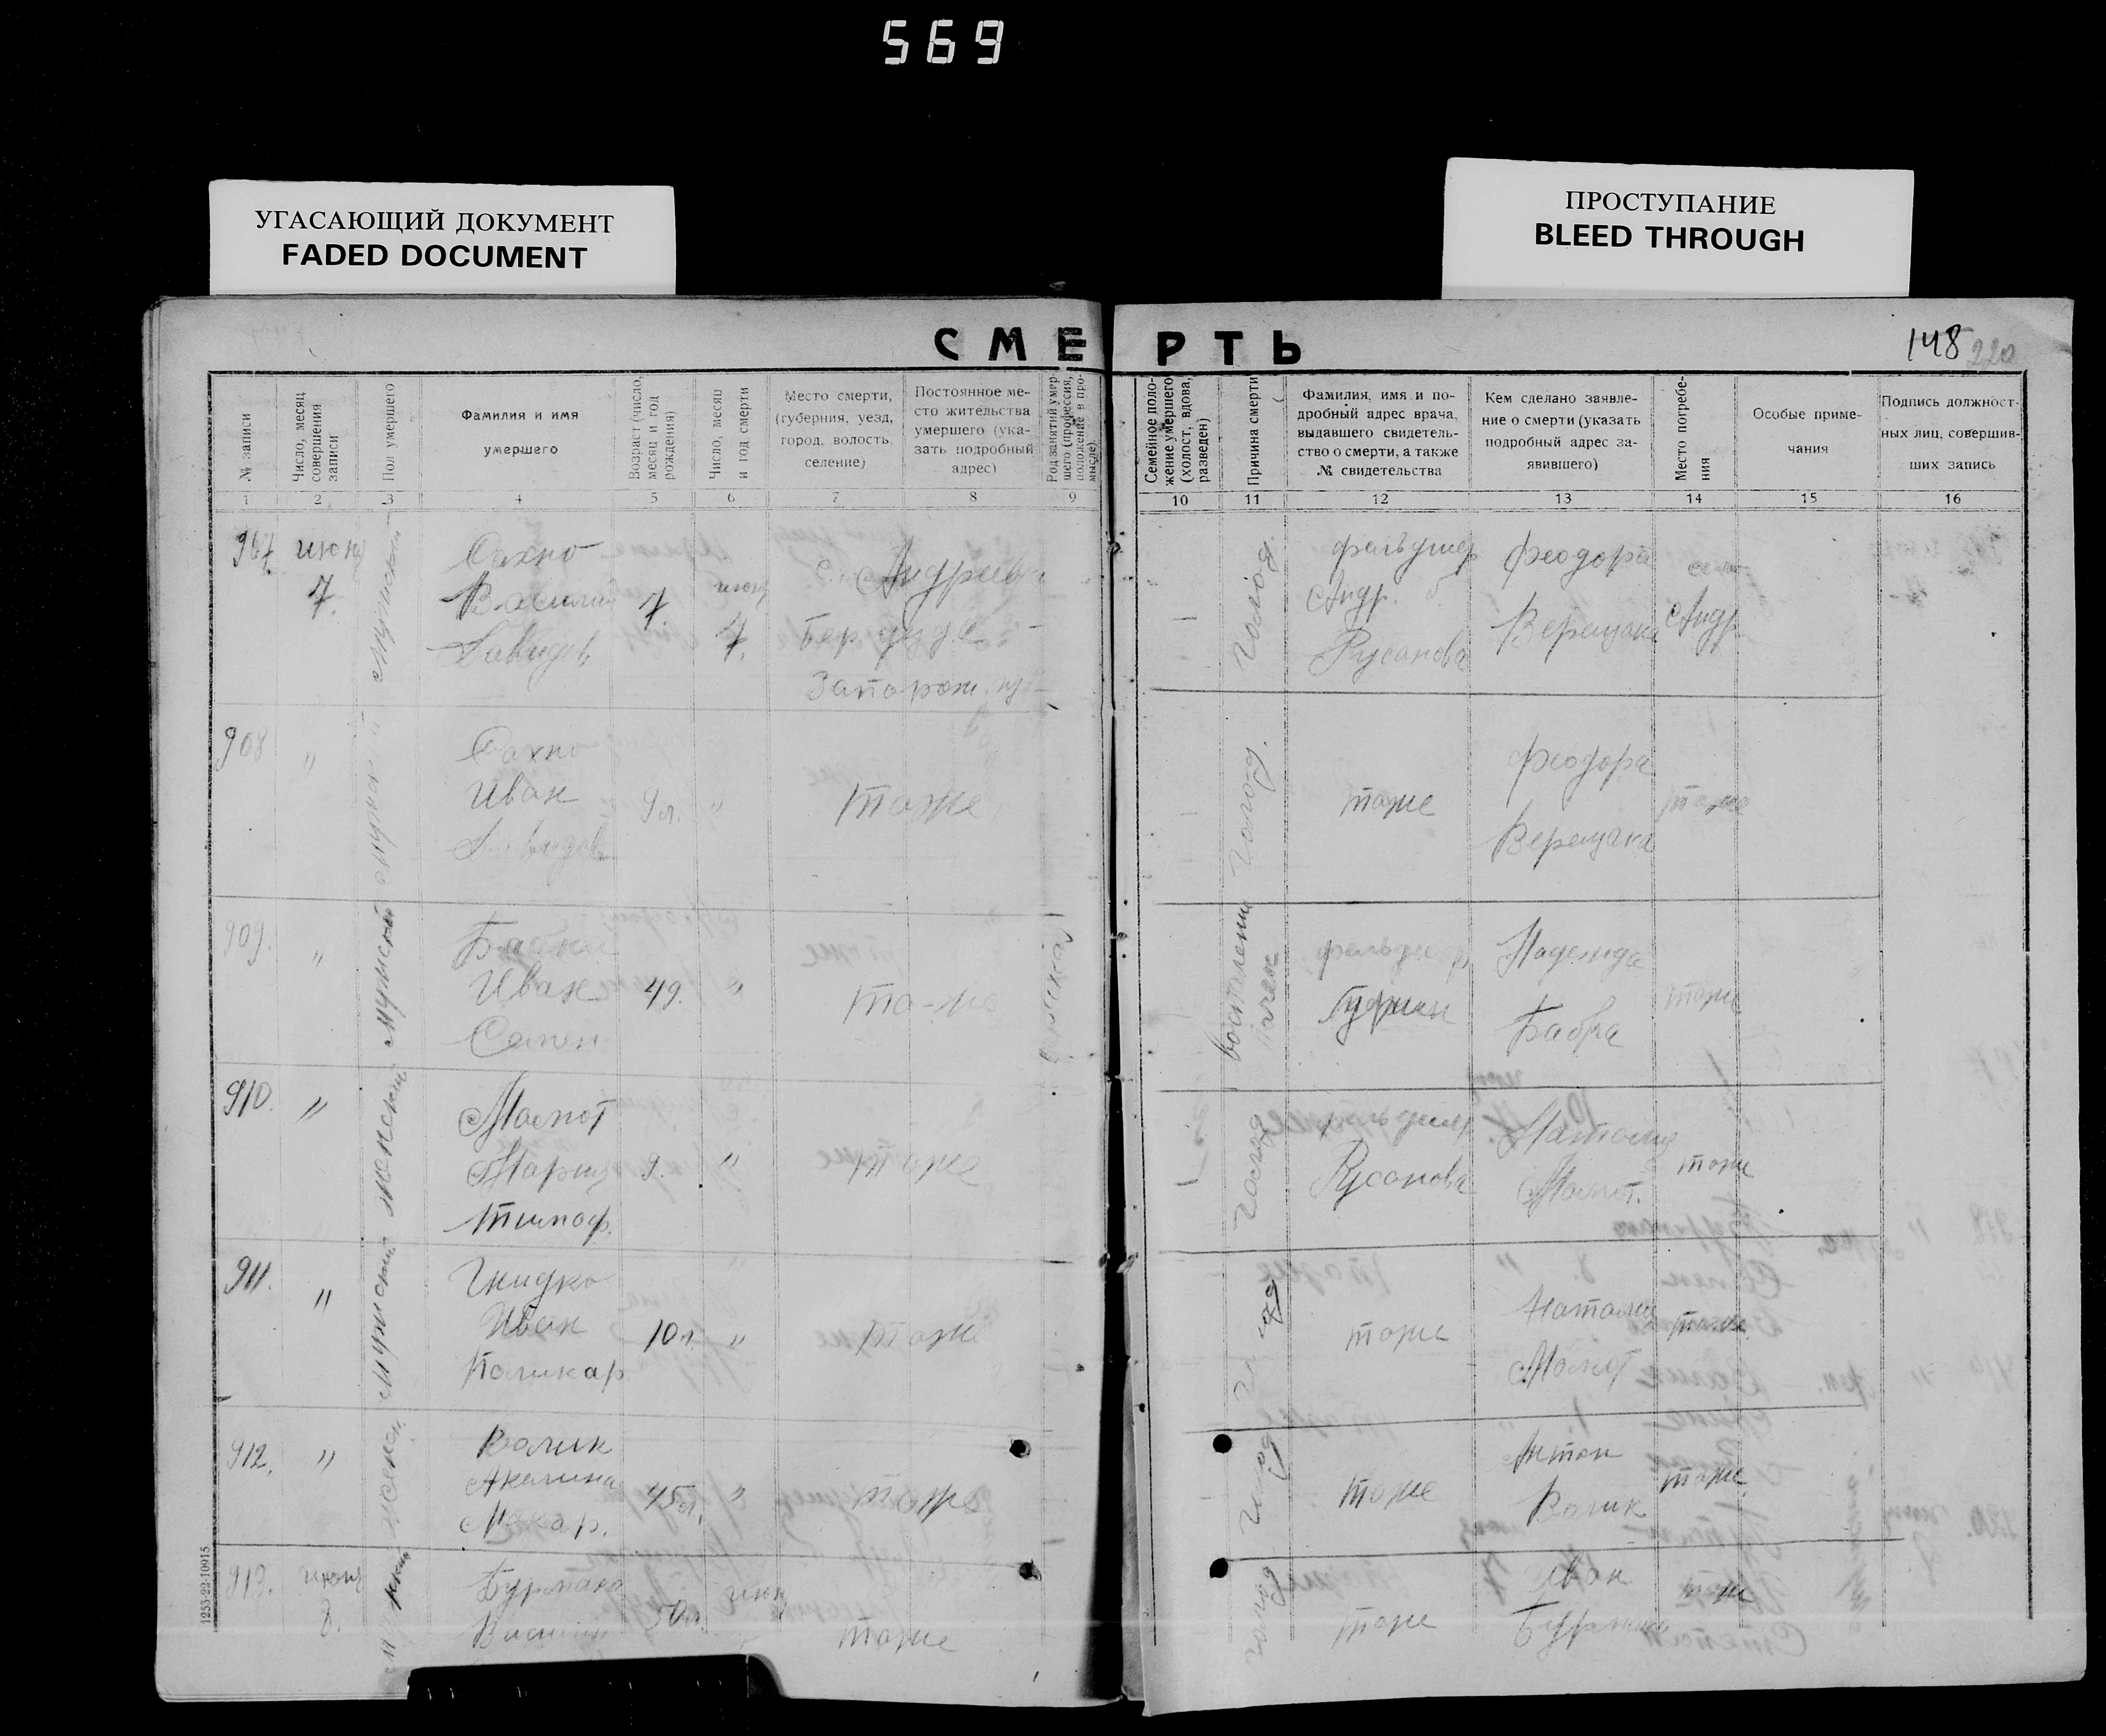 569
УГАСАЮЩИЙ ДОКУМЕНТ
FADED DOCUMENT
ПРОСТУПАНИЕ
BLEED THROUGH
СМЕРТЬ
148 220
№ записи
Число, месяц совершения записи
Пол умершего
Фамилия и имя умершего
Возраст (число, месяц и год рождения)
Число, месяц и год смерти
Место смерти, (губерния, уезд, город, волость, селение)
Постоянное место жительства умершего (указать подробный адрес)
Род занятий умершего (профессия, положение в промысле)
Семейное положение умершего (холост, вдова, разведен)
Причина смерти
Фамилия, имя и подробный адрес врача, выдавшего свидетельство о смерти, а также № свидетельства
Кем сделано заявление о смерти (указать подробный адрес заявившего)
Место погребения
Особые примечания
Подпись должностных лиц, совершивших запись
1 2 3 4 5 6 7 8 9 10 11 12 13 14 15 16
июня
7.
мужской
Сахно
Василий
Давидов
7.
июня
7.
с. Андреев
Бер. уезда
Запорож. губ
голод.
фельдшер
Андр. б
Русанова
Феодора
Верещака
село
Андр
908
"
Сахно
Иван
Давидов
9л.
"
тоже
голод.
тоже
Феодора
Верещака
тоже
909.
"
мужской
Иван
Семен
49.
"
то-же
воспаление
почек
фельдшер
Надежда
тоже
910.
"
женский
Молот
Мария
Тимоф.
9.
"
тоже
голод
фельдшер
Русанова
Наталия
Молот.
тоже
911.
"
мужской
Иван
Поликар
10л.
"
тоже
голод
тоже
Наталия
Молот
тоже
912.
"
женск.
Волик
Акилина
Макар.
45л.
"
тоже
голод
тоже
Антон
Волик
тоже
913.
июня
8.
Бурмака
50л.
июня
тоже
голод
тоже
Иван
Бурмака
тоже
1253-22-10915